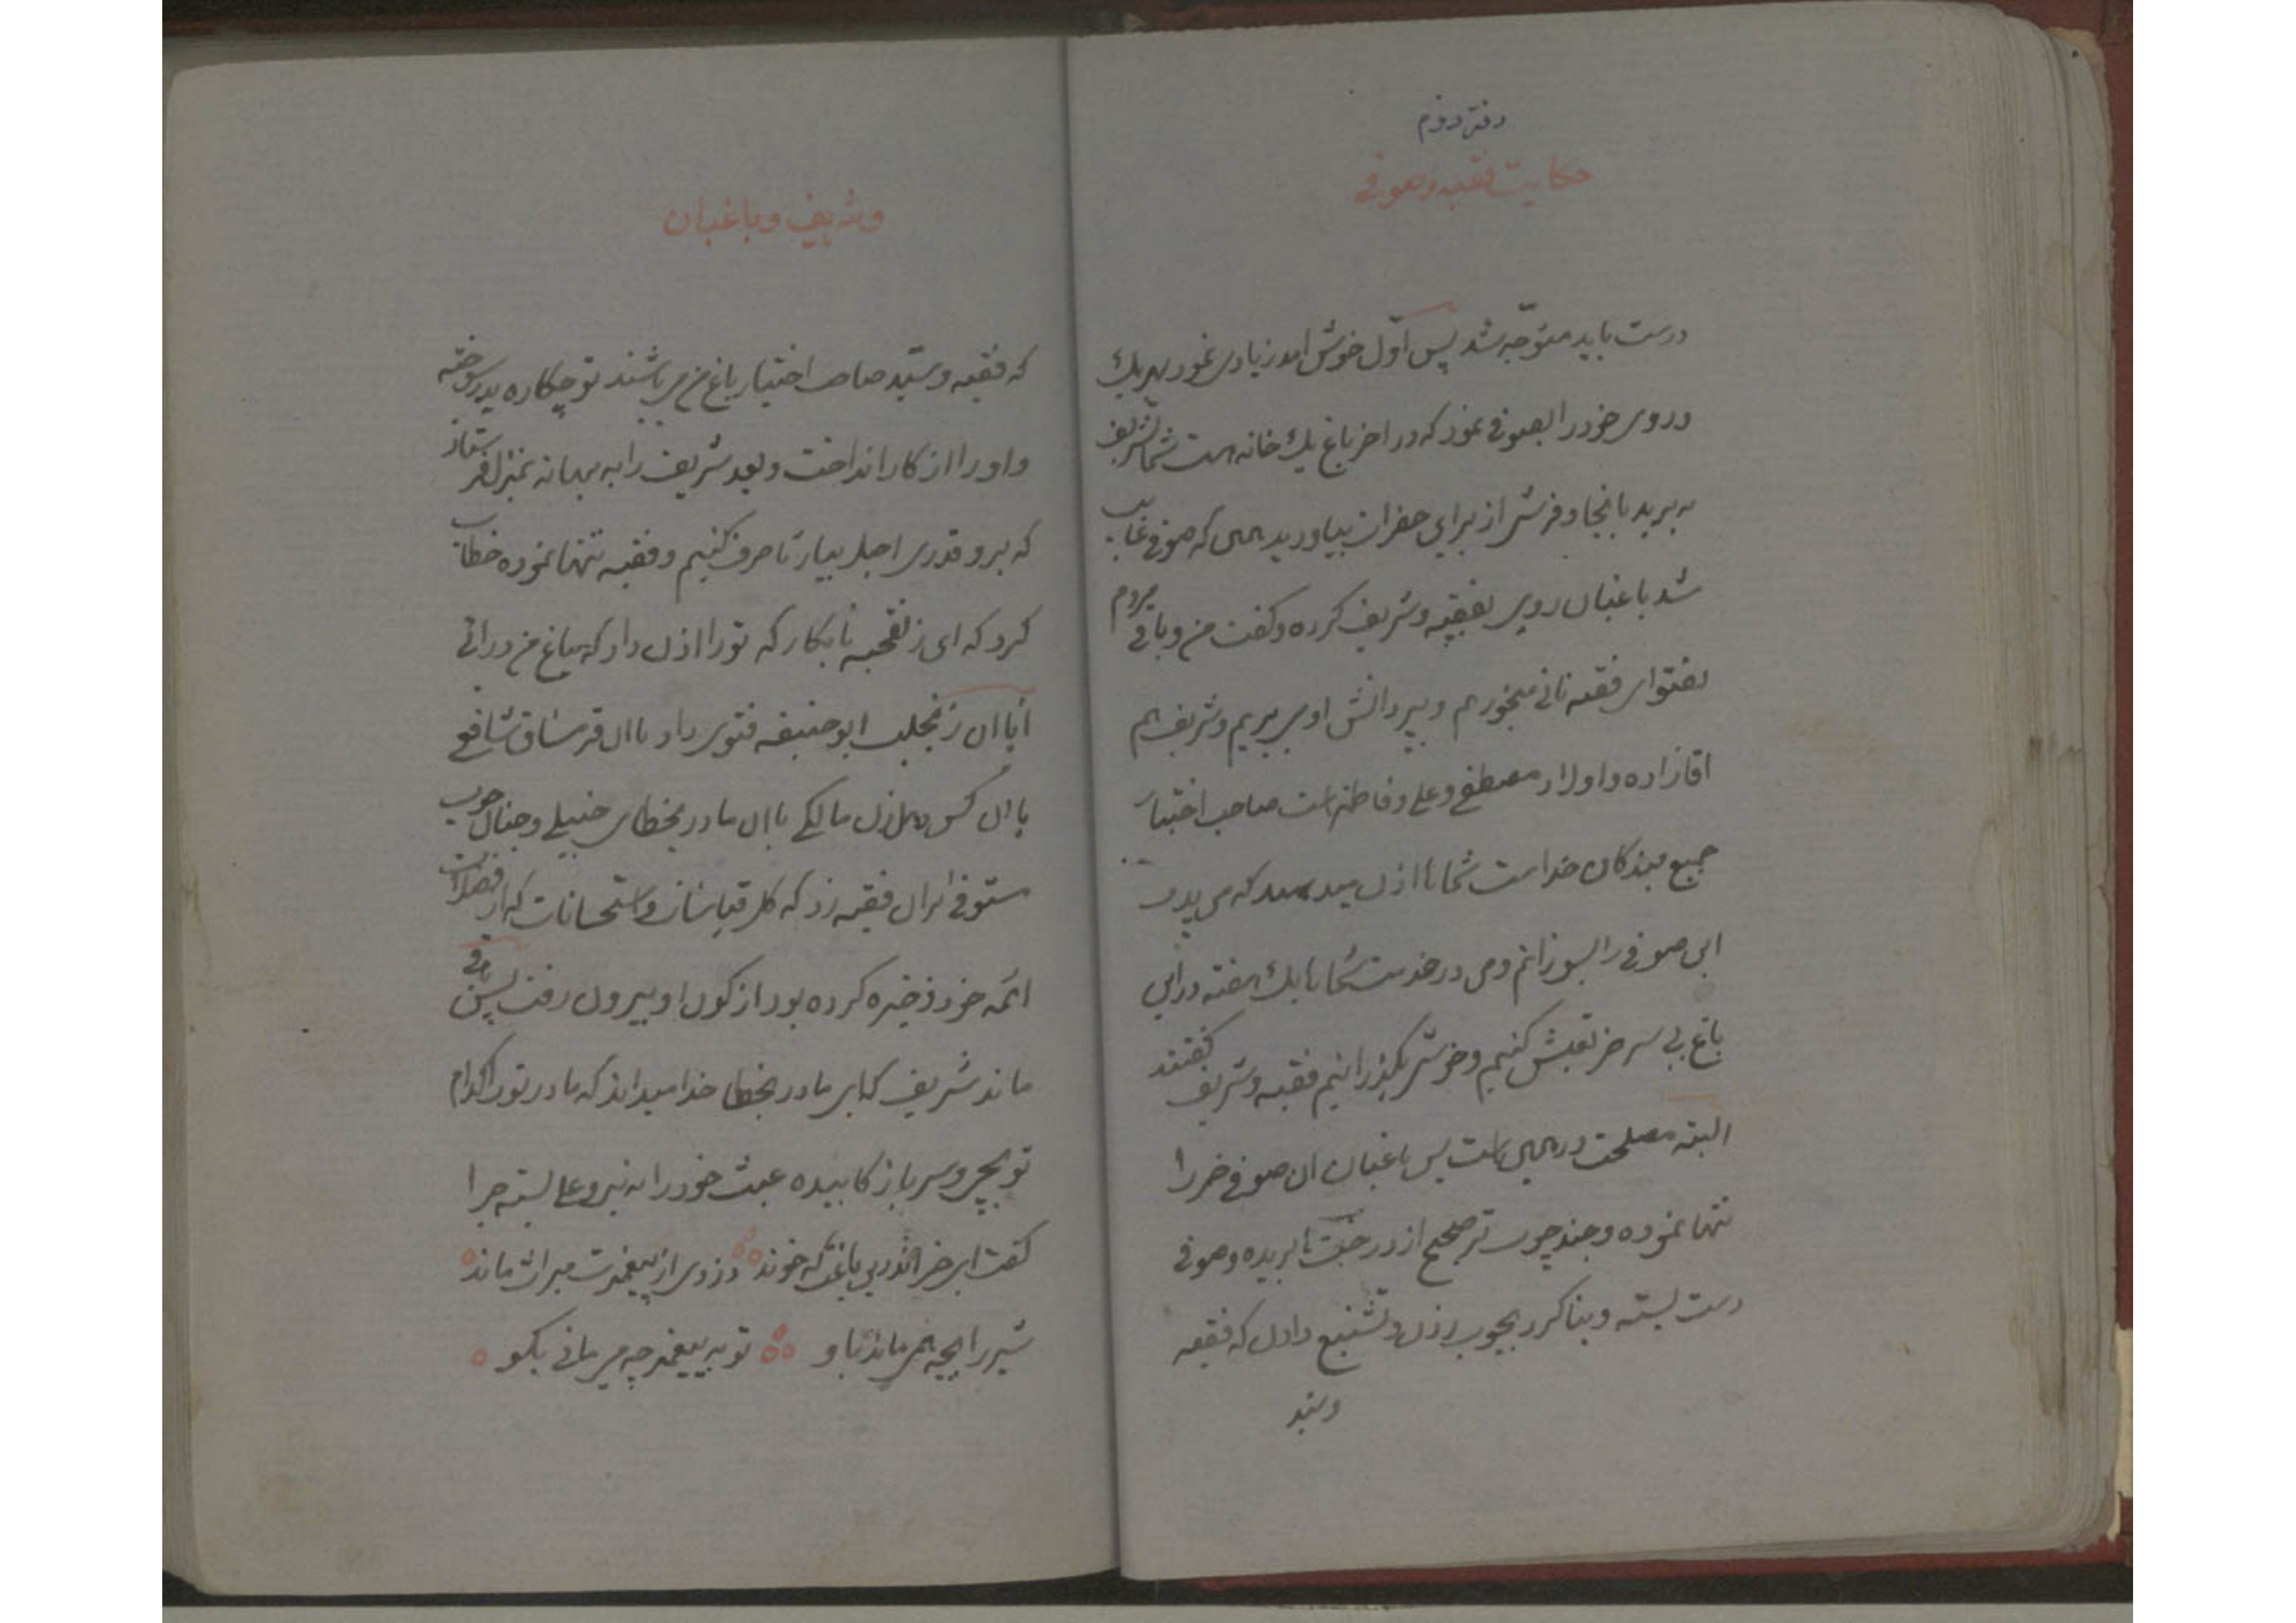 دفتر دوم
حکایت فقیه و صوفی
درست باید متوجّه شد پس اوّل خوش امد زیادی نمود بهریک
و روی خود را بصوفی نمود که در اخر باغ یک خانه است شما تشریف
به برید بانجا و فرش از برای حضرات بیاورید همین که صوفی غایب
شد باغبان روی بفقیه و شریف کرده و گفت من و باقی مردم
بفتوای فقیه نانی میخوریم و بپر دانش او می پریم و شریف هم
اقازاده و اولاد مصطفی و علی و فاطمه است صاحب اختیار
جمیع بندگان خداست شما مرا اذن میدهید که من پدر
این صوفی را بسوزانم و من در خدمت شما تا یک هفته در این
باغ بی سر خر تعیش کنیم و خوش بگذرانیم فقیه و شریف گفتند
البته مصلحت در همین است پس باغبان ان صوفی خر را
تنها نموده و چند چوب تر صحیح از درخت ها بریده و صوفی
دست بسته و بنا کرد بچوب زدن و تشنیع دادن که فقیه
و سید
و شریف و باغبان
که فقیه و سیّد صاحب اختیار باغ من می باشند تو چکاره پدر سوخته
و او را از کار انداخت و بعد شریف را به بهانه بمنزل فرستاد
که برو قدری اجیل بیار تا صرف کنیم و فقیه تنها نموده خطاب
کرد که ای زنقحبه نابکار که تو را اذن داد که بباغ من درائی
ایا ان زنجلب ابوحنیفه فتوی داد یا ان قرمساق شافعی
یا ان کس ده زن مالکی یا ان مادر بخطای حنبلی و چنان چوب
ستوفی بر ان فقیه زد که کل قیاسات و استحسانات که از فضلات
ائمه خود ذخیره کرده بود از کون او بیرون رفت پس باقی
ماند شریف که ای مادر بخطا خدا میداند که مادر تو را کدام
توپچی و سرباز گاییده عبث خود را به نبی و علی بسته چرا
گفت ای خر اندرین باغت که خوند دزدی از پیغمبرت میراث ماند
شیر را بچه همی ماند باو تو به پیغمبر چه می مانی بگو